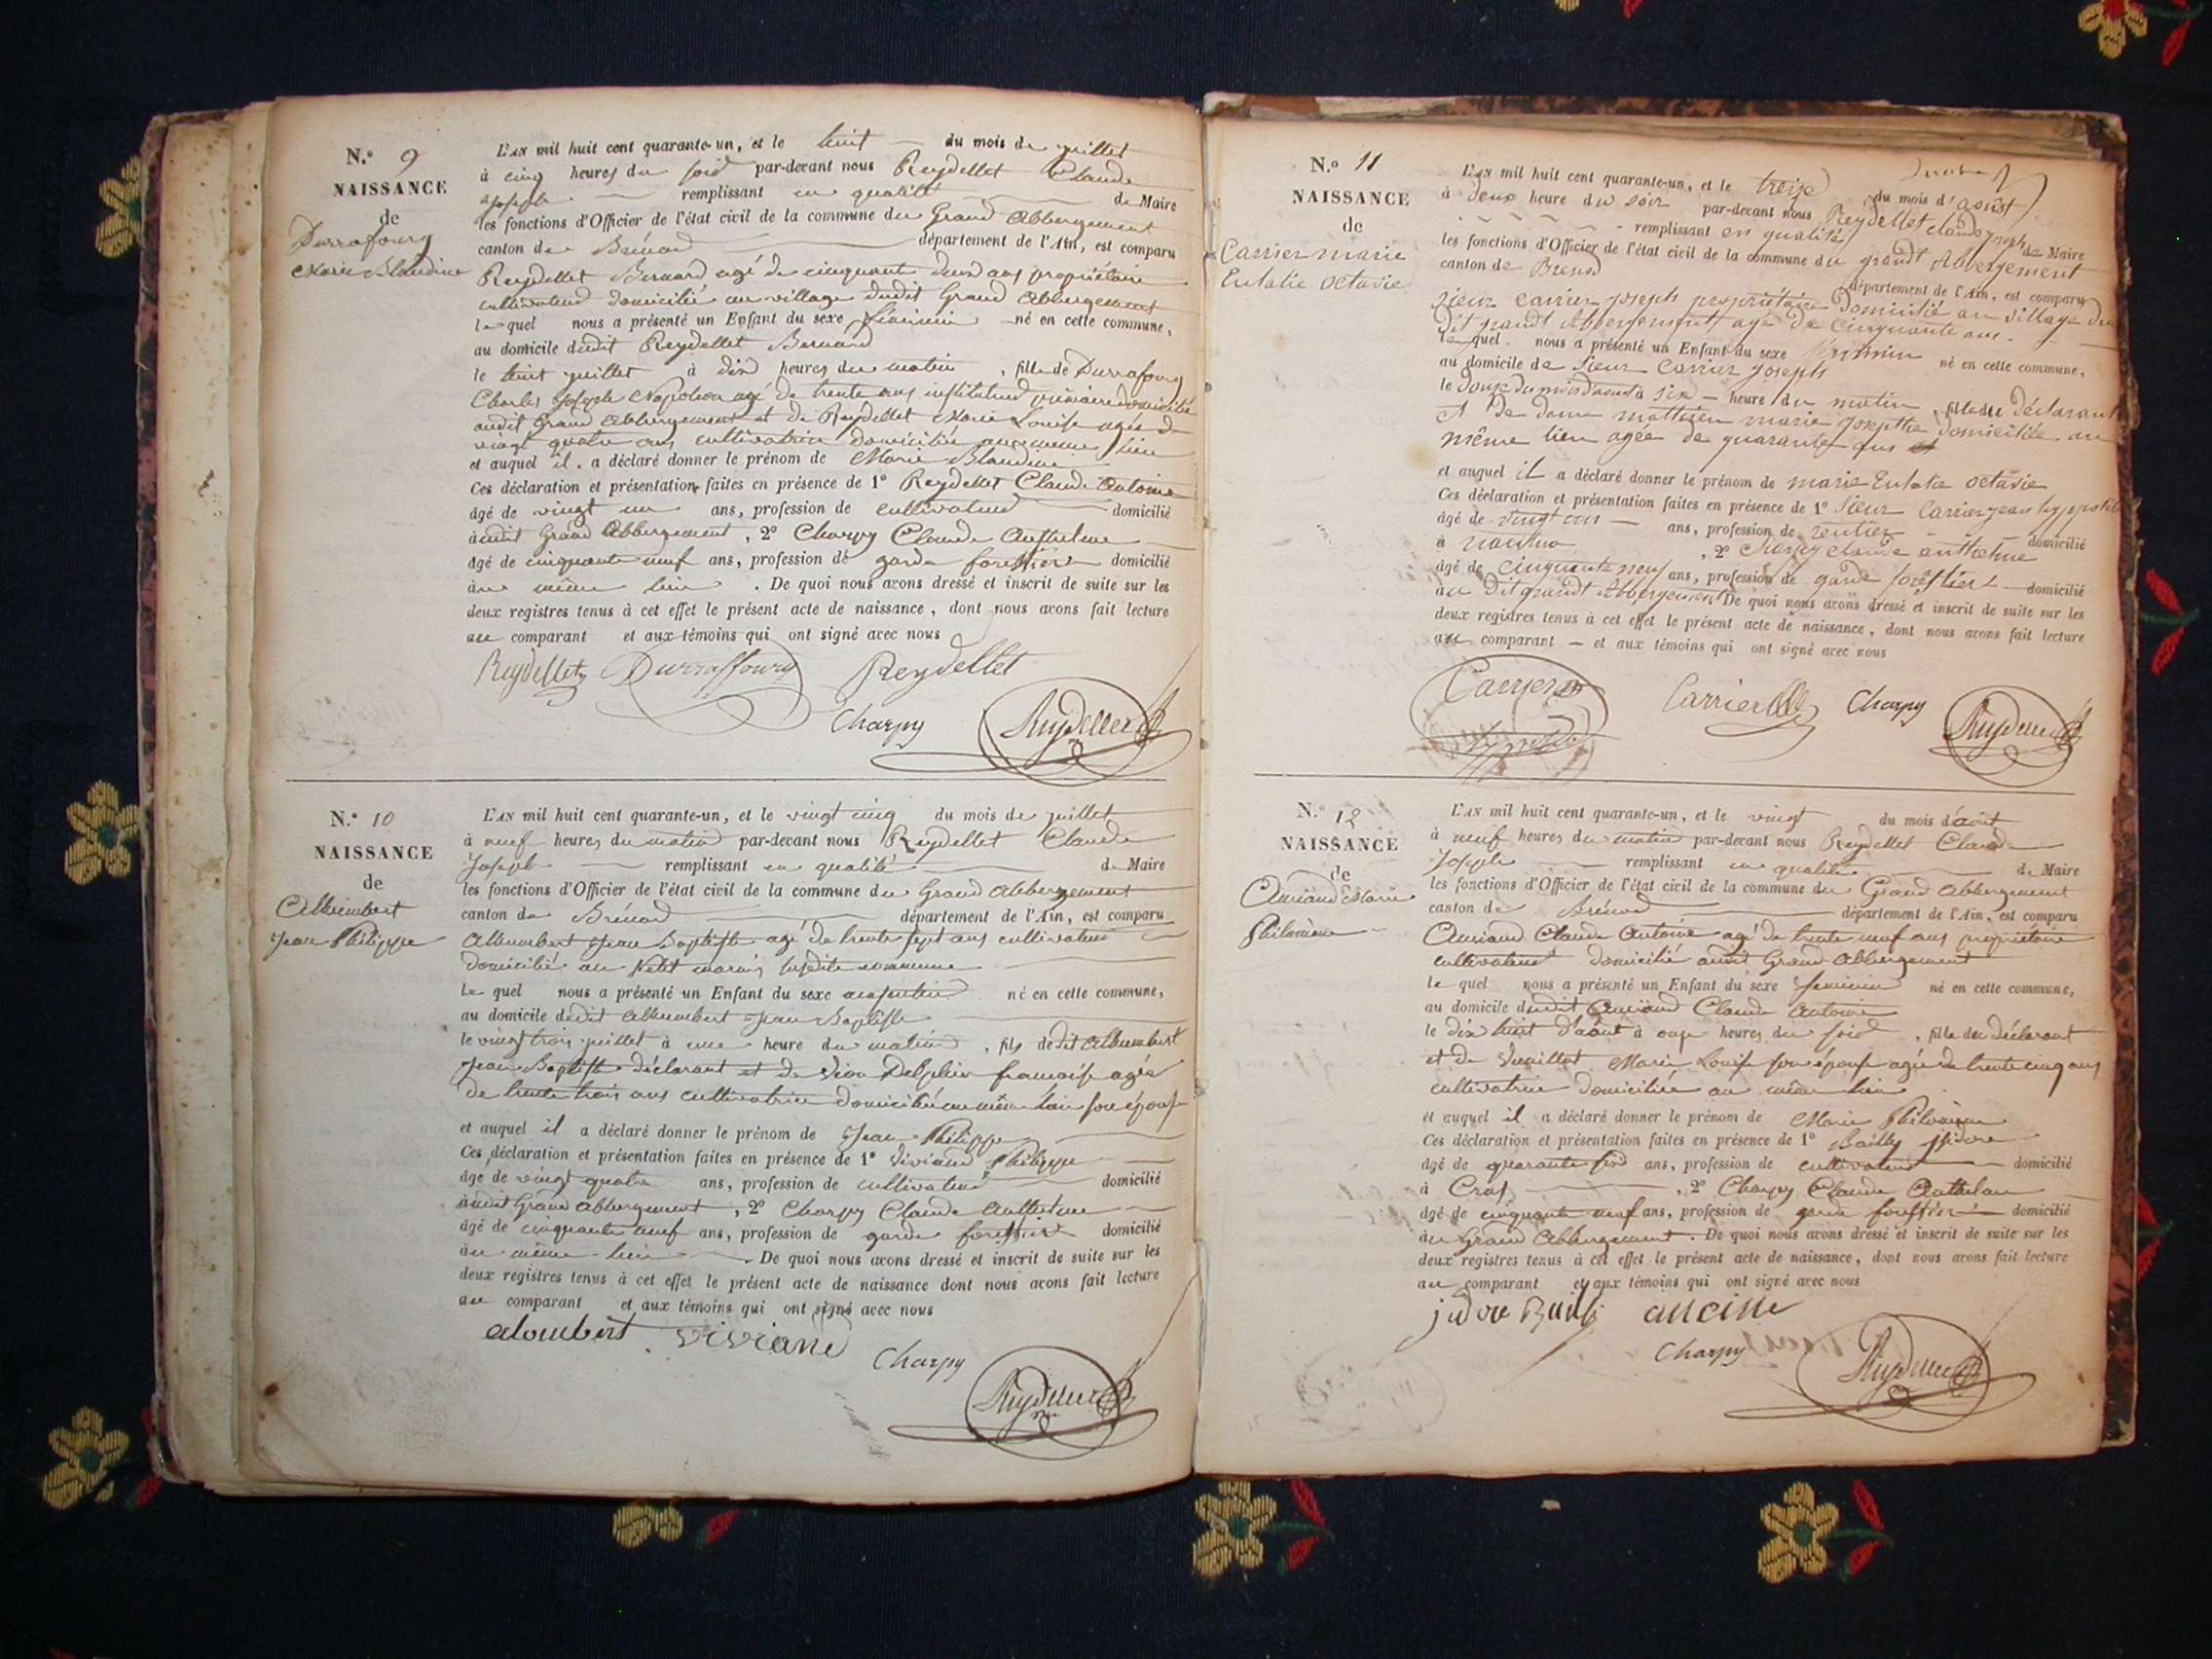 N.° 9
NAISSANCE
de
Durrafourg
Marie Blandine
L'AN mil huit cent quarante-un, et le huit du mois de juillet
à cinq heures du soir par-devant nous Reydellet Claude
Joseph remplissant en qualité de Maire
les fonctions d'Officier de l'état civil de la commune du Grand Abbergement
canton de Brénod département de l'Ain, est comparu
Reydellet Bernard agé de cinquante deux ans propriétaire
cultivateur domicilié au village dudit Grand Abbergement
lequel nous a présenté un Enfant du sexe féminin né en cette commune,
au domicile dudit Reydellet Bernard
le huit juillet à dix heures du matin, fille de Durrafourg
Charles Joseph Napoleon agé de trente ans instituteur primaire domicilié
audit Grand Abbergement et de Reydellet Marie Louise agée de
vingt quatre ans cultivatrice domiciliée au même lieu
et auquel il a déclaré donner le prénom de Marie Blandine
Ces déclaration et présentation faites en présence de 1° Reydellet Claude Antoine
âgé de vingt un ans, profession de cultivateur domicilié
audit Grand Abbergement, 2° Charpy Claude Anthelme
âgé de cinquante neuf ans, profession de garde forestier domicilié
au même lieu. De quoi nous avons dressé et inscrit de suite sur les
deux registres tenus à cet effet le présent acte de naissance, dont nous avons fait lecture
au comparant et aux témoins qui ont signé avec nous
Reydellet Durraffourg Reydellet
Charpy Reydellet
N.° 10
NAISSANCE
de
Allhumbert
Jean Philippe
L'AN mil huit cent quarante-un, et le vingt cinq du mois de juillet
à neuf heures du matin par-devant nous Reydellet Claude
Joseph remplissant en qualité de Maire
les fonctions d'Officier de l'état civil de la commune du Grand Abbergement
canton de Brénod département de l'Ain, est comparu
Allhumbert Jean Baptiste agé de trente sept ans cultivateur
domicilié au Petit marais susdite commune
lequel nous a présenté un Enfant du sexe masculin né en cette commune,
au domicile dudit Allhumbert Jean Baptiste
le vingt trois juillet à une heure du matin, fils dedit Allhumbert
Jean Baptiste déclarant et de Delphin francoise agée
de trente trois ans cultivatrice domiciliée au même lieu son épouse
et auquel il a déclaré donner le prénom de Jean Philippe
Ces déclaration et présentation faites en présence de 1° Viviand Philippe
âge de vingt quatre ans, profession de cultivateur domicilié
audit Grand Abbergement, 2° Charpy Claude Anthelme
âgé de cinquante neuf ans, profession de garde forestier domicilié
au même lieu. De quoi nous avons dressé et inscrit de suite sur les
deux registres tenus à cet effet le présent acte de naissance dont nous avons fait lecture
au comparant et aux témoins qui ont signé avec nous
alombert viviand
Charpy
Reydellet
N.° 11
NAISSANCE
de
Carrier marie
Eulalie octavie
L'AN mil huit cent quarante-un, et le treize du mois d'août
à deux heure du soir par-devant nous Reydellet claude joseph
remplissant en qualité de Maire
les fonctions d'Officier de l'état civil de la commune du grandt Abbergement
canton de Brenod département de l'Ain, est comparu
sieur carrier joseph propriétaire domicilié au village du
dit grandt Abbergement agé de cinquante ans
lequel nous a présenté un Enfant du sexe féminin né en cette commune,
au domicile de sieur carrier joseph
le douze du mois daout à six heure du matin, fille du déclarant
et de dame matthieu marie josephe domiciliée au
même lieu agée de quarante ans
et auquel il a déclaré donner le prénom de marie Eulalie octavie
Ces déclaration et présentation faites en présence de 1° sieur Carrier jean hyppolite
âgé de vingt ans, profession de rentier domicilié
à nantua, 2° Charpy claude anthelme
âgé de cinquante neuf ans, profession de garde forestier domicilié
au dit grandt Abbergement De quoi nous avons dressé et inscrit de suite sur les
deux registres tenus à cet effet le présent acte de naissance, dont nous avons fait lecture
au comparant et aux témoins qui ont signé avec nous
Carrier Carrier Charpy Reydellet
N.° 12
NAISSANCE
de
Anciand Marie
Philomène
L'AN mil huit cent quarante-un, et le vingt du mois d'août
à neuf heures du matin par-devant nous Reydellet Claude
Joseph remplissant en qualité de Maire
les fonctions d'Officier de l'état civil de la commune du Grand Abbergement
canton de Brénod département de l'Ain, est comparu
Anciand Claude Antoine agé de trente neuf ans propriétaire
cultivateur domicilié audit Grand Abbergement
lequel nous a présenté un Enfant du sexe féminin né en cette commune,
au domicile dudit Anciand Claude Antoine
le dix huit d'août à onze heures du soir, fille du déclarant
et de Vuaillat Marie Louise son épouse agée de trente cinq ans
cultivatrice domiciliée au même lieu
et auquel il a déclaré donner le prénom de Marie Philomène
Ces déclaration et présentation faites en présence de 1° Bailly Isidore
âgé de quarante six ans, profession de cultivateur domicilié
à, 2° Charpy Claude Anthelme
âgé de cinquante neuf ans, profession de garde forestier domicilié
au Grand Abbergement. De quoi nous avons dressé et inscrit de suite sur les
deux registres tenus à cet effet le présent acte de naissance, dont nous avons fait lecture
au comparant et aux témoins qui ont signé avec nous
Charpy
Reydellet